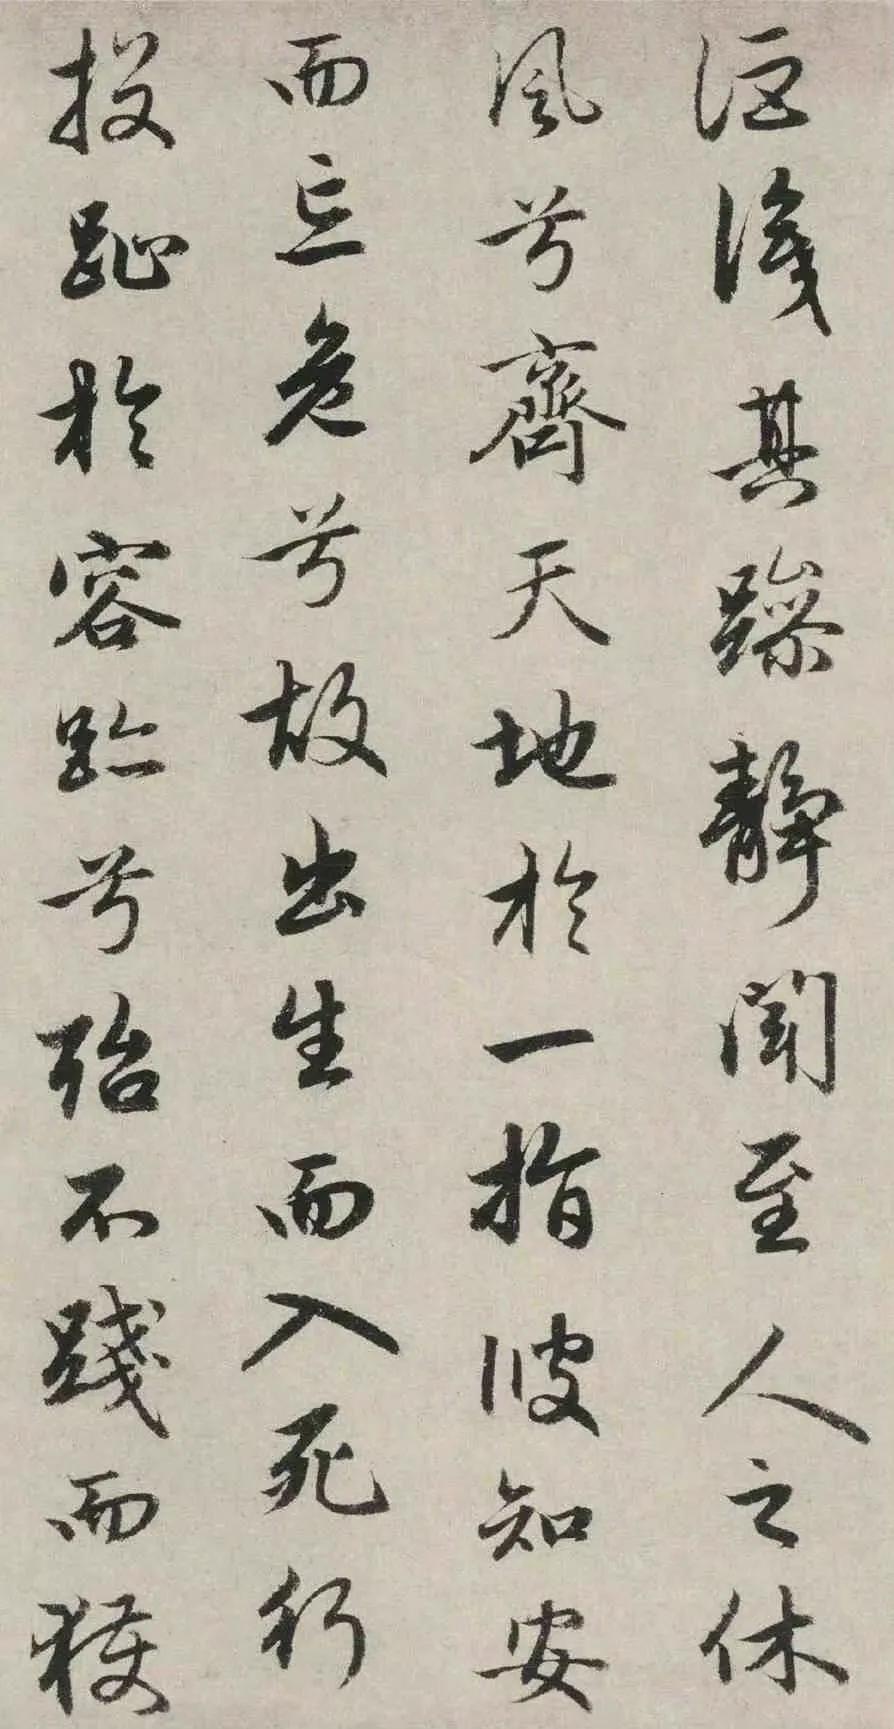 詎識其躁靜聞至人之休
風兮齊天地於一指彼知安
而忘危兮故出生而入死行
投趾於容跡兮殆不踐而獲